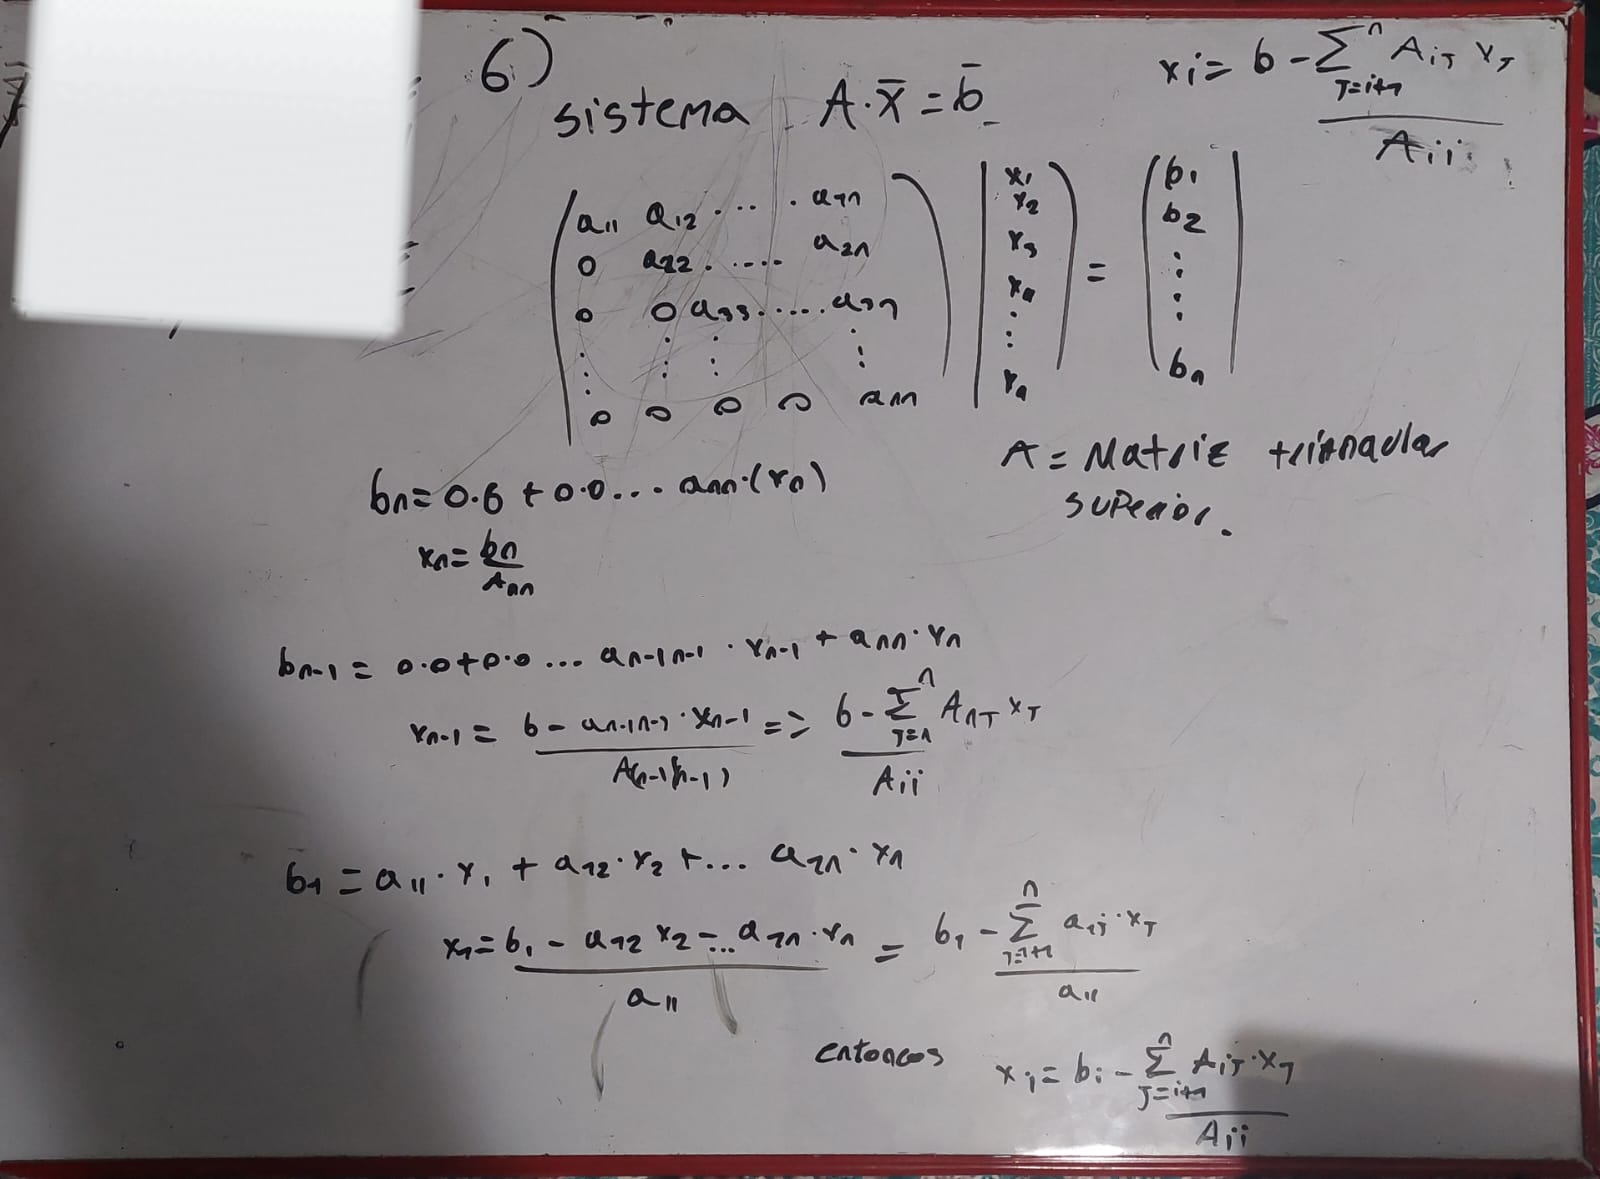 6)
sistema A·x̄ = b̄
xi = b - Σ^n_{J=i+1} AiJ xJ / Aii
a11 a12 ... . a1n
0 a22 . .... a2n
0 0 a33 ..... a3n
⋮ ⋮ ⋮ ⋮
0 0 0 0 ann
x1
x2
x3
⋮
xn
=
b1
b2
⋮
bn
A = Matriz triangular
superior.
bn = 0.0 + 0.0 ... ann·(xn)
xn = bn / Ann
bn-1 = 0·0 + 0·0 ... an-1n-1 · xn-1 + ann · xn
xn-1 = b - an-1n-1 · xn-1 / A(n-1)(n-1) => b - Σ^n_{J=n} AnJ xJ / Aii
b1 = a11 · x1 + a12 · x2 + ... a1n · xn
x1 = b1 - a12 x2 - ... a1n · xn / a11 = b1 - Σ^n_{J=1+1} aij · xJ / a11
entonces xi = bi - Σ^n_{J=i+1} AiJ · xJ / Aii